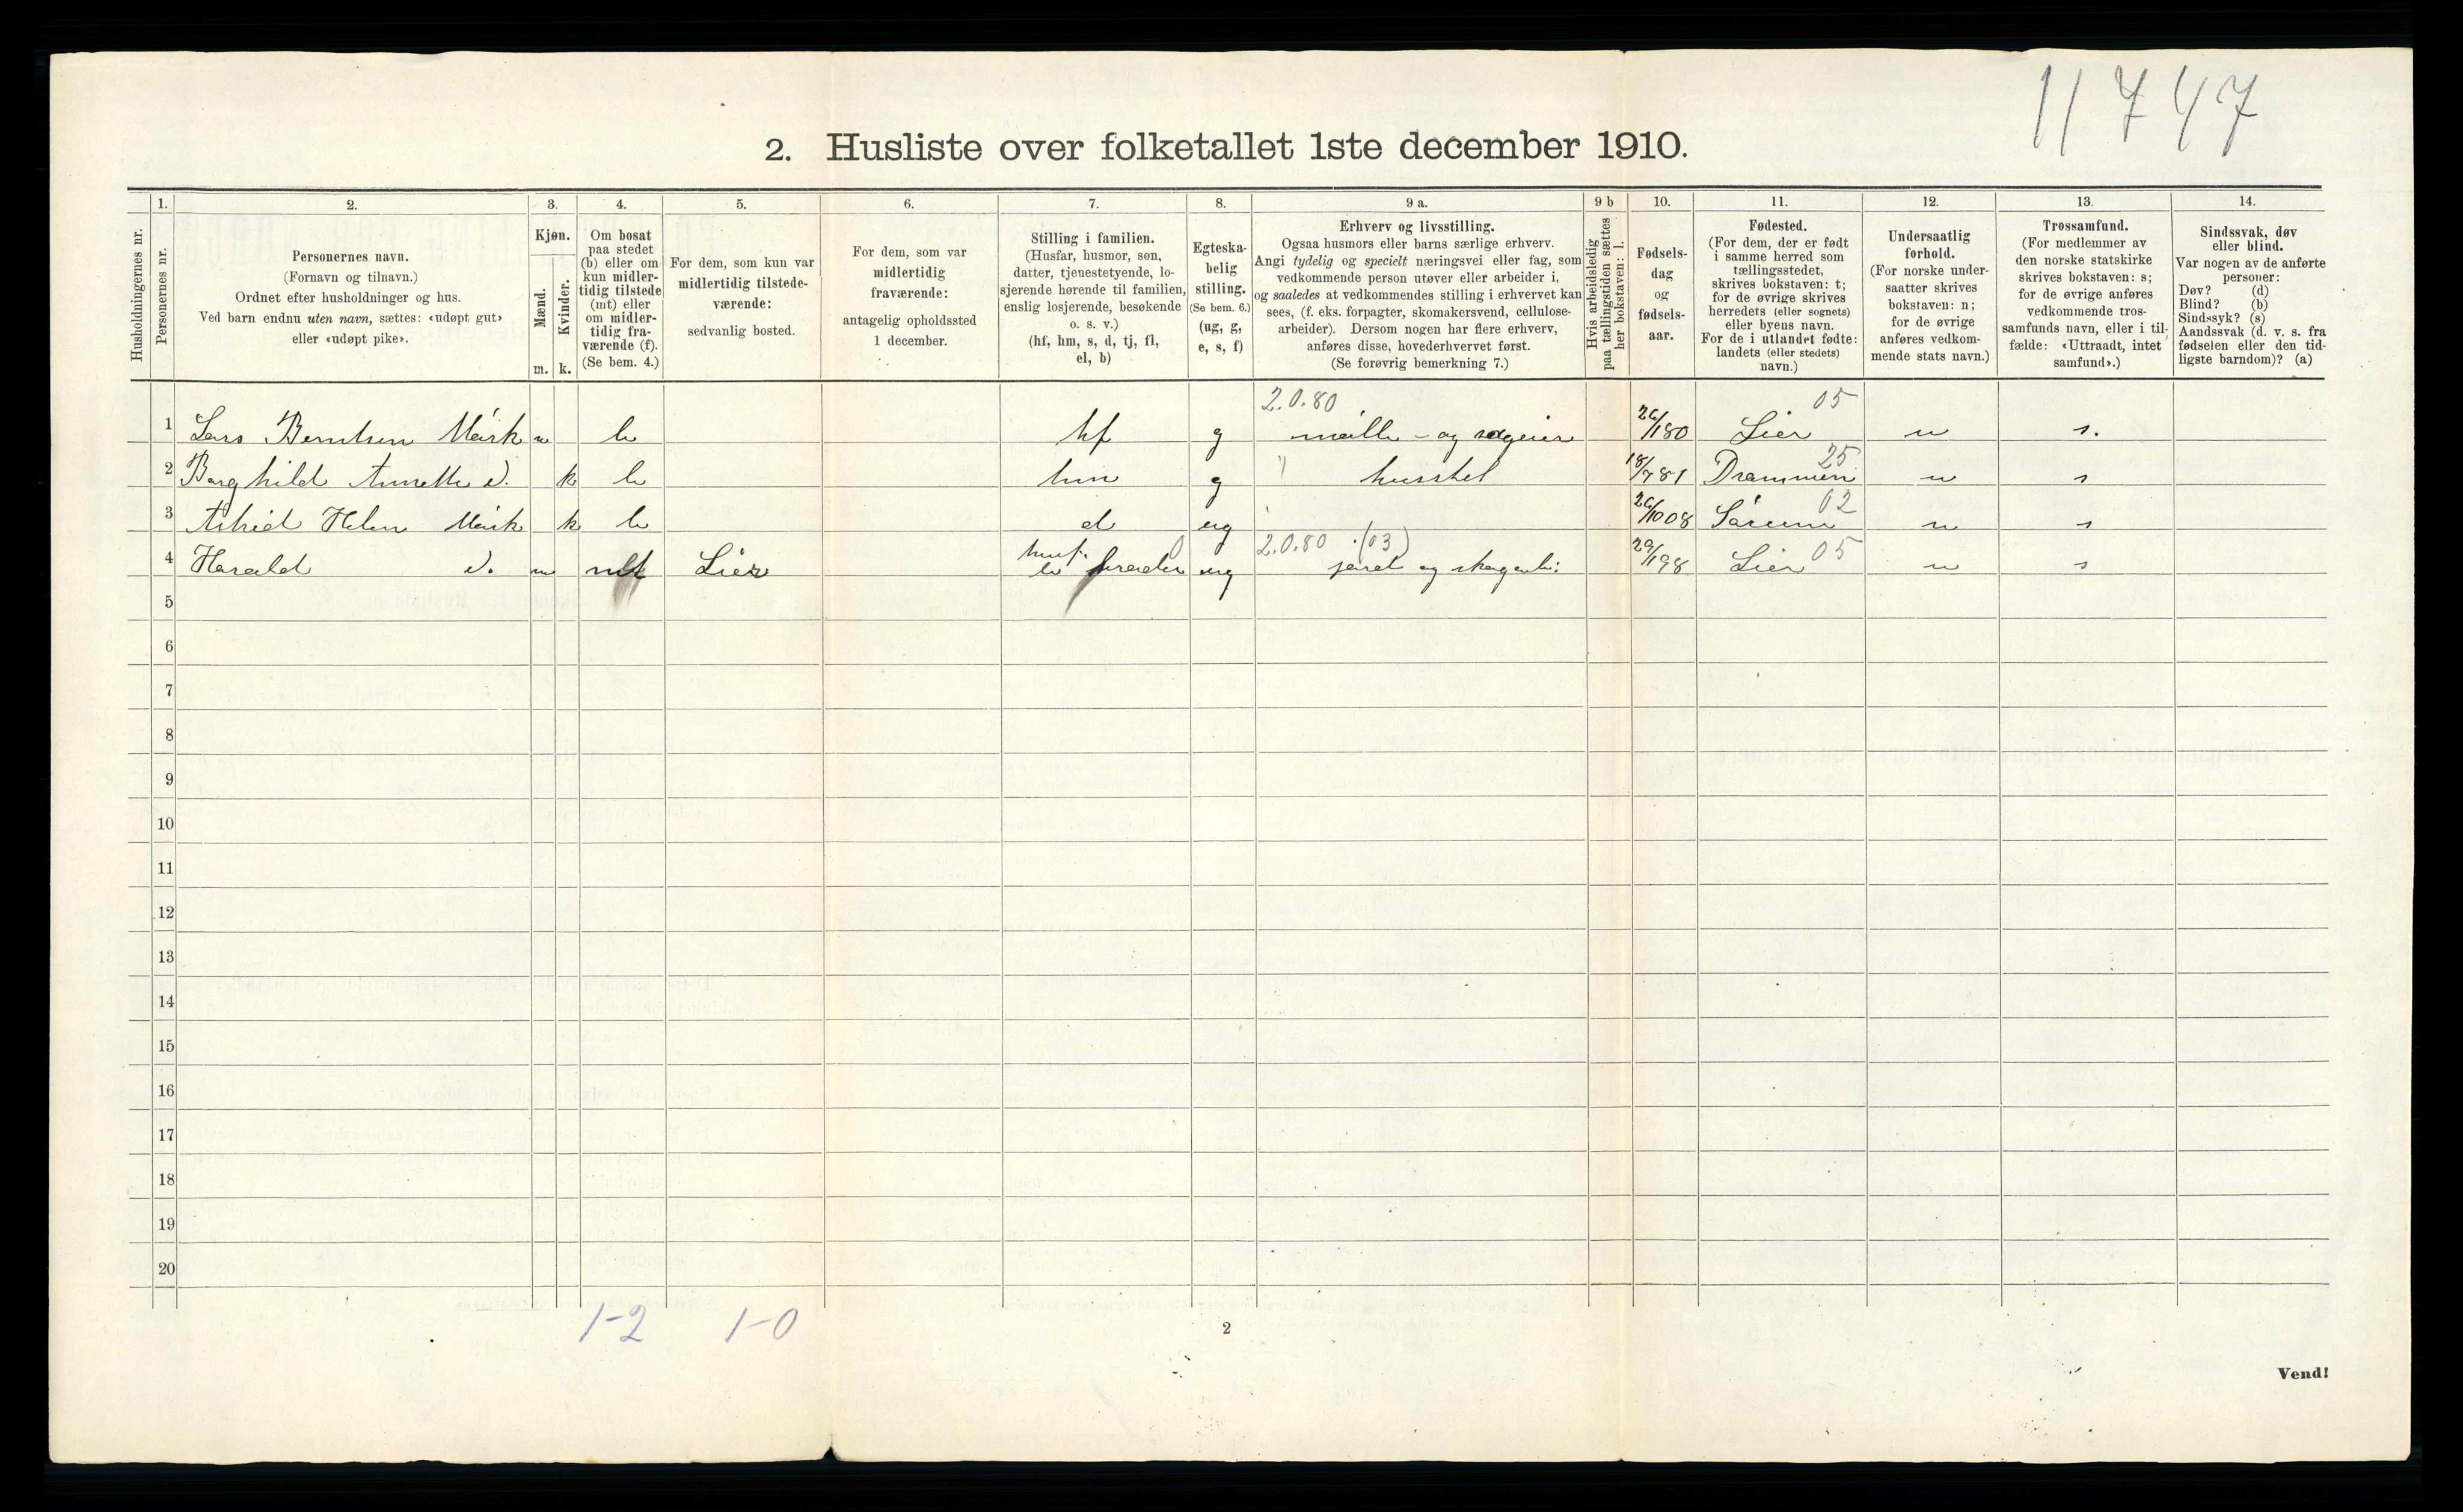 11747
2. Husliste over folketallet 1ste december 1910.
Husholdningernes nr.
1. Personernes nr.
2. Personernes navn. (Fornavn og tilnavn.) Ordnet efter husholdninger og hus. Ved barn endnu uten navn, sættes: «udøpt gut» eller «udøpt pike».
3. Kjøn. Mænd. m. Kvinder. k.
4. Om bosat paa stedet (b) eller om kun midler-tidig tilstede (mt) eller om midler-tidig fra-værende (f). (Se bem. 4.)
5. For dem, som kun var midlertidig tilstede-værende: sedvanlig bosted.
6. For dem, som var midlertidig fraværende: antagelig opholdssted 1 december.
7. Stilling i familien. (Husfar, husmor, søn, datter, tjenestetyende, lo-sjerende hørende til familien, enslig losjerende, besøkende o. s. v.) (hf, hm, s, d, tj, fl, el, b)
8. Egteska-belig stilling. (Se bem. 6.) (ug, g, e, s, f)
9 a. Erhverv og livsstilling. Ogsaa husmors eller barns særlige erhverv. Angi tydelig og specielt næringsvei eller fag, som vedkommende person utøver eller arbeider i, og saaledes at vedkommendes stilling i erhvervet kan sees, (f. eks. forpagter, skomakersvend, cellulose-arbeider). Dersom nogen har flere erhverv, anføres disse, hovederhvervet først. (Se forøvrig bemerkning 7.)
9 b Hvis arbeidsledig paa tællingstiden sættes her bokstaven: l.
10. Fødsels-dag og fødsels-aar.
11. Fødested. (For dem, der er født i samme herred som tællingsstedet, skrives bokstaven: t; for de øvrige skrives herredets (eller sognets) eller byens navn. For de i utlandet fødte: landets (eller stedets) navn.)
12. Undersaatlig forhold. (For norske under-saatter skrives bokstaven: n; for de øvrige anføres vedkom-mende stats navn.)
13. Trossamfund. (For medlemmer av den norske statskirke skrives bokstaven: s; for de øvrige anføres vedkommende tros-samfunds navn, eller i til-fælde: «Uttraadt, intet samfund».)
14. Sindssvak, døv eller blind. Var nogen av de anførte personer: Døv? (d) Blind? (b) Sindssyk? (s) Aandssvak (d. v. s. fra fødselen eller den tid-ligste barndom)? (a)
2.0.80 05
1 Lars Berntsen Mørk m b hf g mølle- og sageier 26/1 80 Lier n s.
25
2 Borghild Annette d. k b hm g " husstel 18/7 81 Drammen n s
02
3 Helen Mørk k b d ug 26/10 08 Sørum n s
husf. 0 2.0.80 (03)
4 Harald d. m mt Lier b broder ug jord og 29/1 98 Lier 05 n s
5
6
7
8
9
10
11
12
13
14
15
16
17
18
19
20
1-2 1-0
2
Vend!